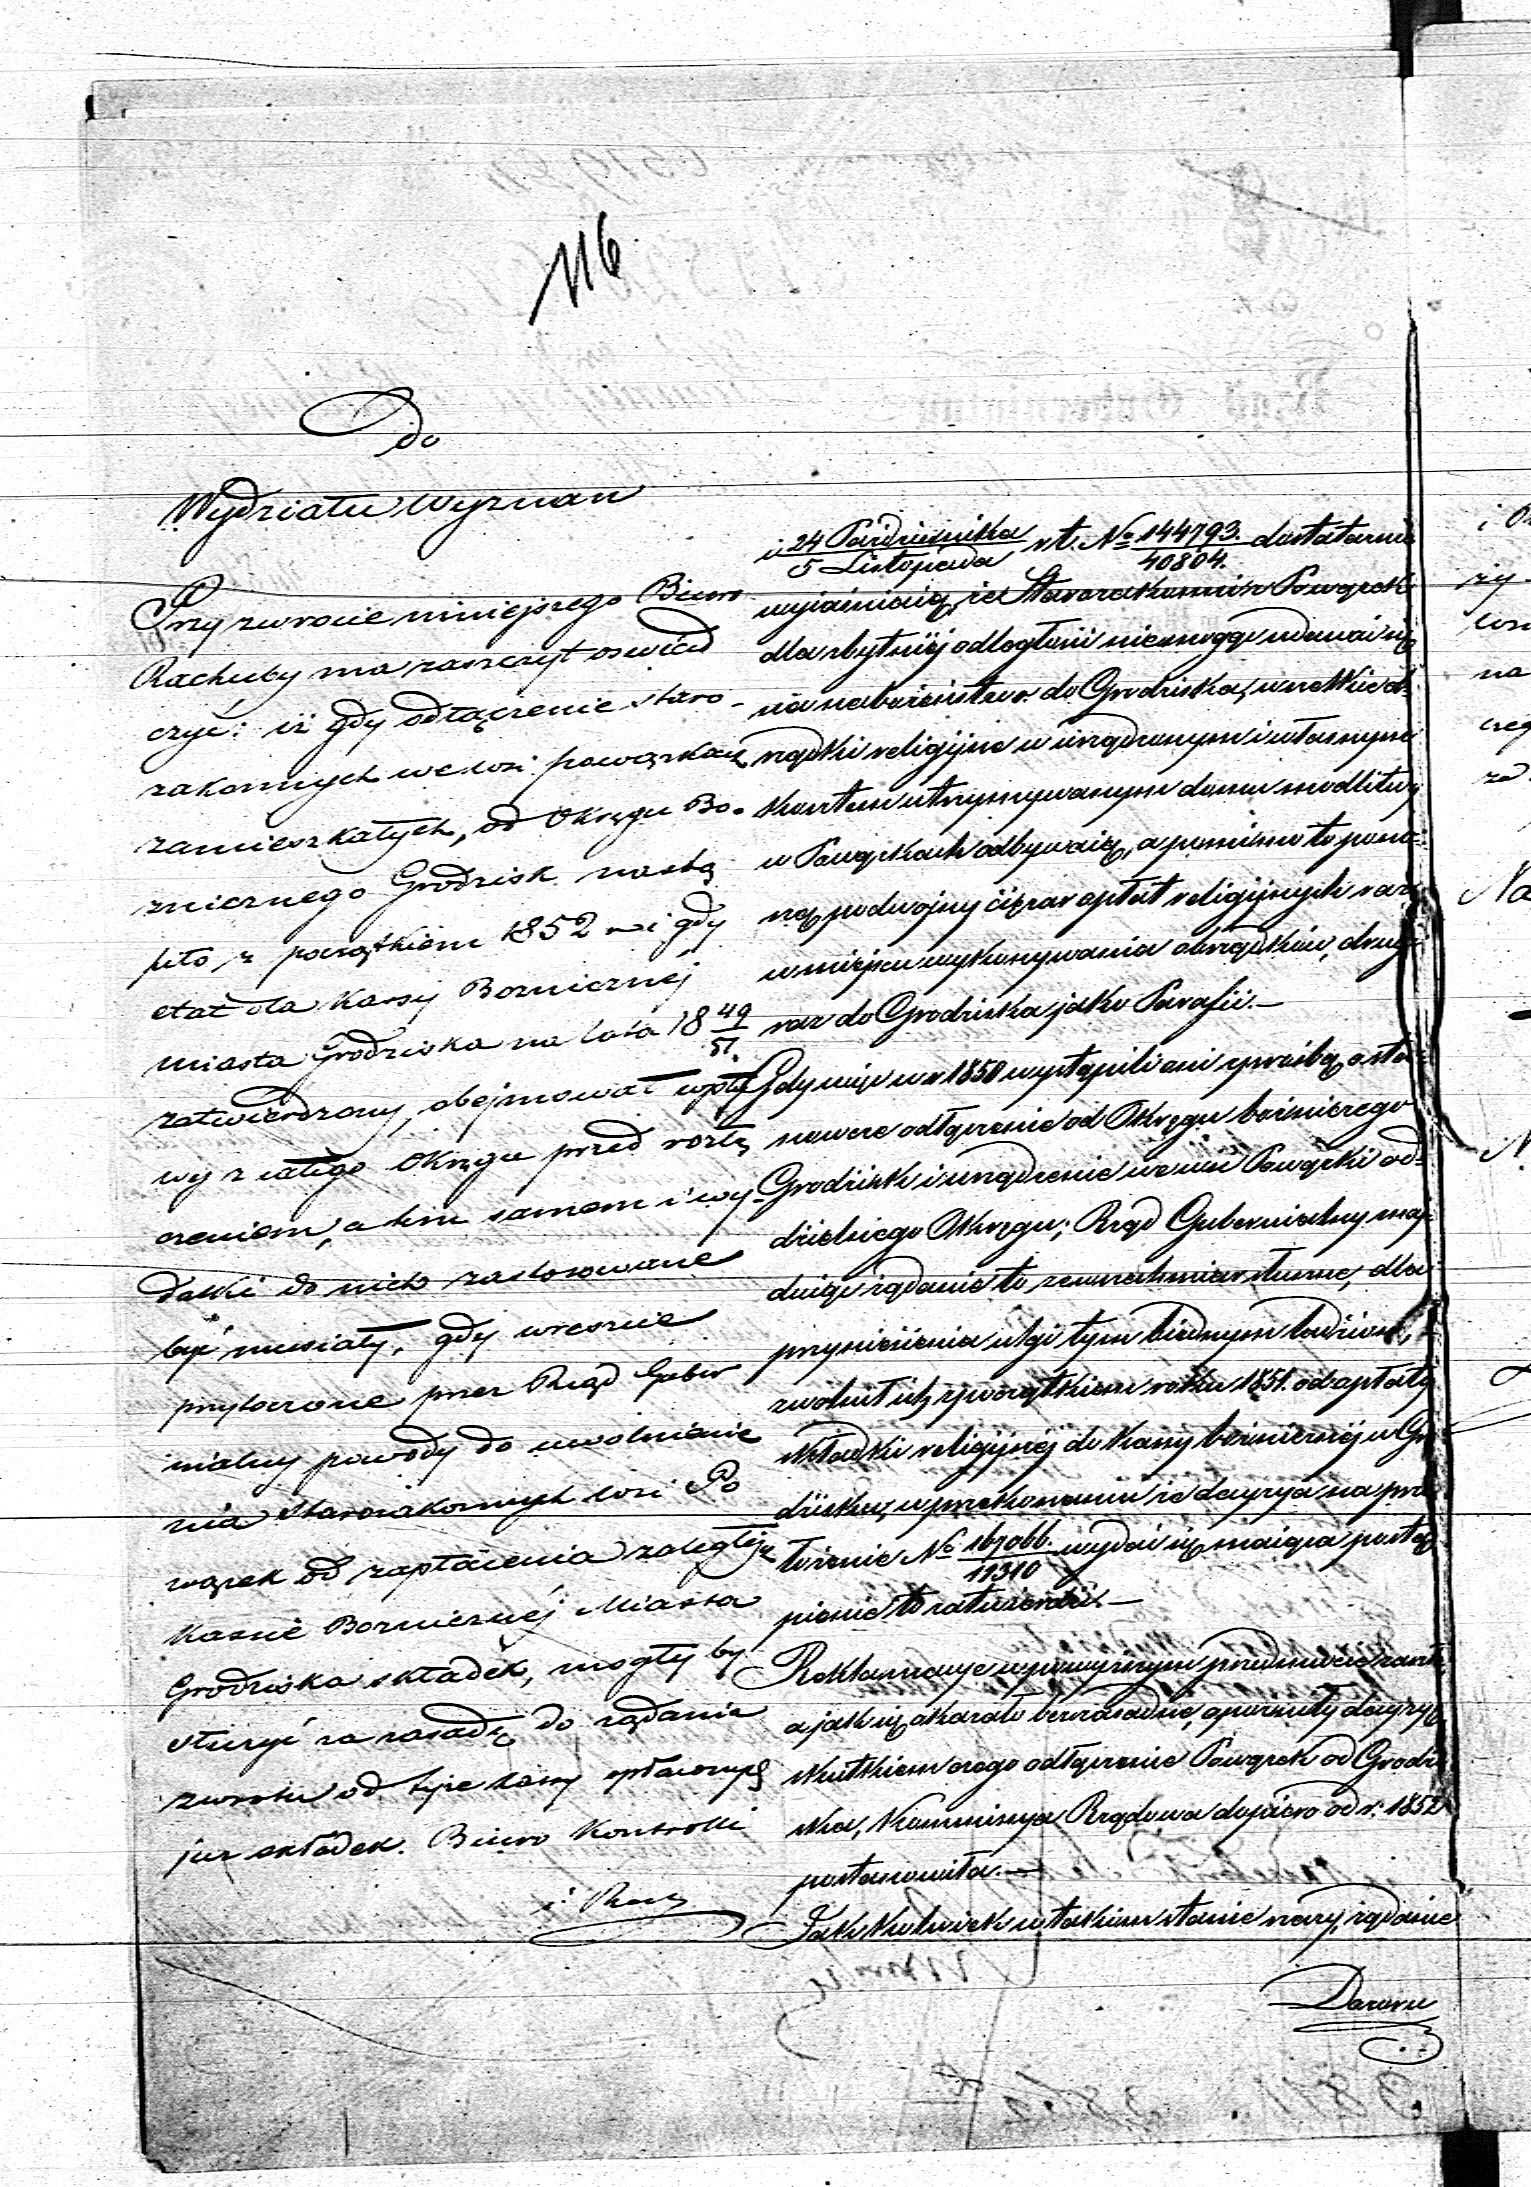 116
Do
Wydziału Wyznan
Przy zwrocie niniejszego Biuro
Rachuby ma zaszczyt oswiad
czyć: iż gdy odłączenie staro-
zakonnych we wsi powązkach
zamieszkałych, od Okręgu Bo-
znicznego Grodzisk nastą
piło z początkiem 1852 r i gdy
etat dla Kassy Bozniczney
miasta Grodziska na lata 18 49/51.
zatwierdzony, obejmował wpły
wy z całego Okręgu przed rozłą
czeniem, a tem samem i wy-
datki do nich zastosowane
być musiały, gdy wreszcie
przytoczone przez Rząd Guber
nialny powody do uwolnienie
nia Starozakonnych wsi Po
wązek od zapłacenia zaległej
Kassie Bozniczney Miasta
Grodziska składek, mogły by
służyć za zasadę do żądania
zwrotu od tyże kassy opłaconych
już składek. Biuro Kontrolli
i Rach
i 24 Października/5 Listopada r.t. № 144793./40804. dostatecznie
wyjaśniaią, że Starozakonni z Powązek
dla zbytniej odległości niemogąc udawać się
na nabożeństwo do Grodziska, wszelkie ob
rządki religijne w urządzonym i własnym
kosztem utrzymywanym domu modlitwy
w Powązkach odbywaią, a pomimo to pono-
szą podwojny ciężar opłat religijnych raz
w miejscu wykonywania obrządków, drugi
raz do Grodziska jako Parafii.—
Gdy więc w r 1850 wystąpili oni z prośbą o sta
nowcze odłączenie od Okręgu bożniczego
Grodzisk i urządzenie we wsi Powązki od-
dzielnego Okręgu; Rząd Gubernialny znaj-
duiąc żądanie to ze wszechmiar słuszne, dla
przyniesienia ulgi tym biednym ludziom,
zwolnił ich z początkiem roku 1851. od opłaty
składki religijnéj do Kassy bożniczéj w Gro
dzisku, w przekonaniu że decyzya na przed
łożenie № 167066./11310 wydać się maiąca postą
pienie to zatwierdzi.—
Reklamacye w powyższym przedmiocie zaszłe,
a jak się okazało bezzasadne, opoznily decyzyę
skutkiem czego odłączenie Powązek od Grodzi
ska, Kommissya Rządowa dopiéro od r: 1852
postanowiła.—
Jakkolwiek w takiem stanie rzeczy, żądanie